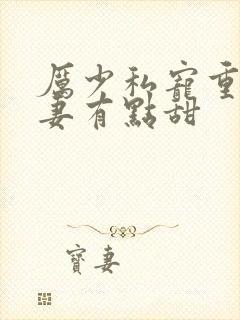 厲少私寵重
妻有點甜
寶妻